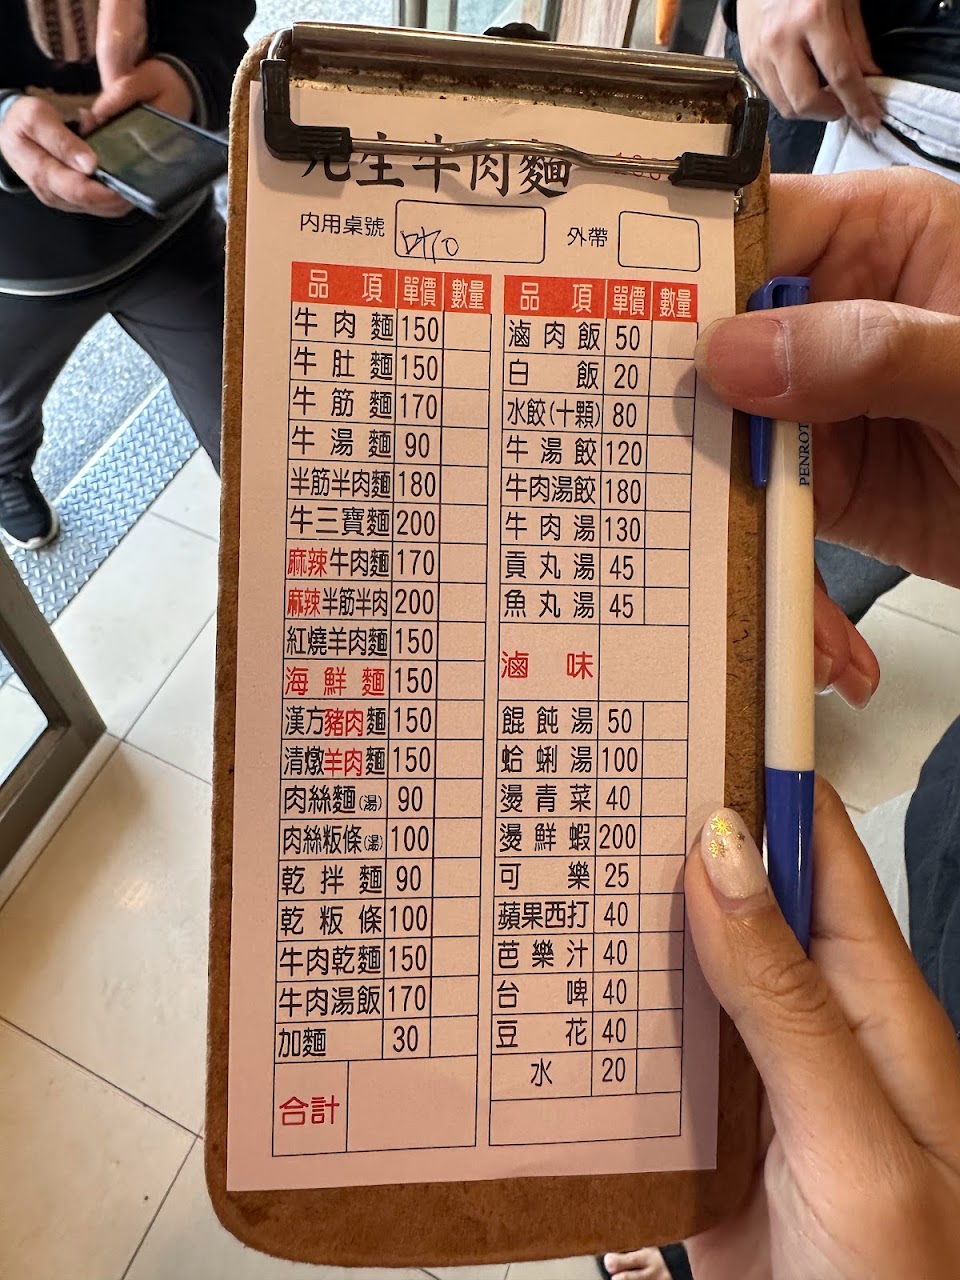 生牛肉麵
內用桌號
外帶
品項 單價 數量
牛肉麵 150
牛肚麵 150
牛筋麵 170
牛湯麵 90
半筋半肉麵 180
牛三寶麵 200
麻辣牛肉麵 170
麻辣半筋半肉 200
紅燒羊肉麵 150
海鮮麵 150
漢方豬肉麵 150
清燉羊肉麵 150
肉絲麵(湯) 90
肉絲粄條(湯) 100
乾拌麵 90
乾粄條 100
牛肉乾麵 150
牛肉湯飯 170
加麵 30
合計
品項 單價 數量
滷肉飯 50
白飯 20
水餃(十顆) 80
牛湯餃 120
牛肉湯餃 180
牛肉湯 130
貢丸湯 45
魚丸湯 45
滷味
餛飩湯 50
蛤蜊湯 100
燙青菜 40
燙鮮蝦 200
可樂 25
蘋果西打 40
芭樂汁 40
台啤 40
豆花 40
水 20
PENROT